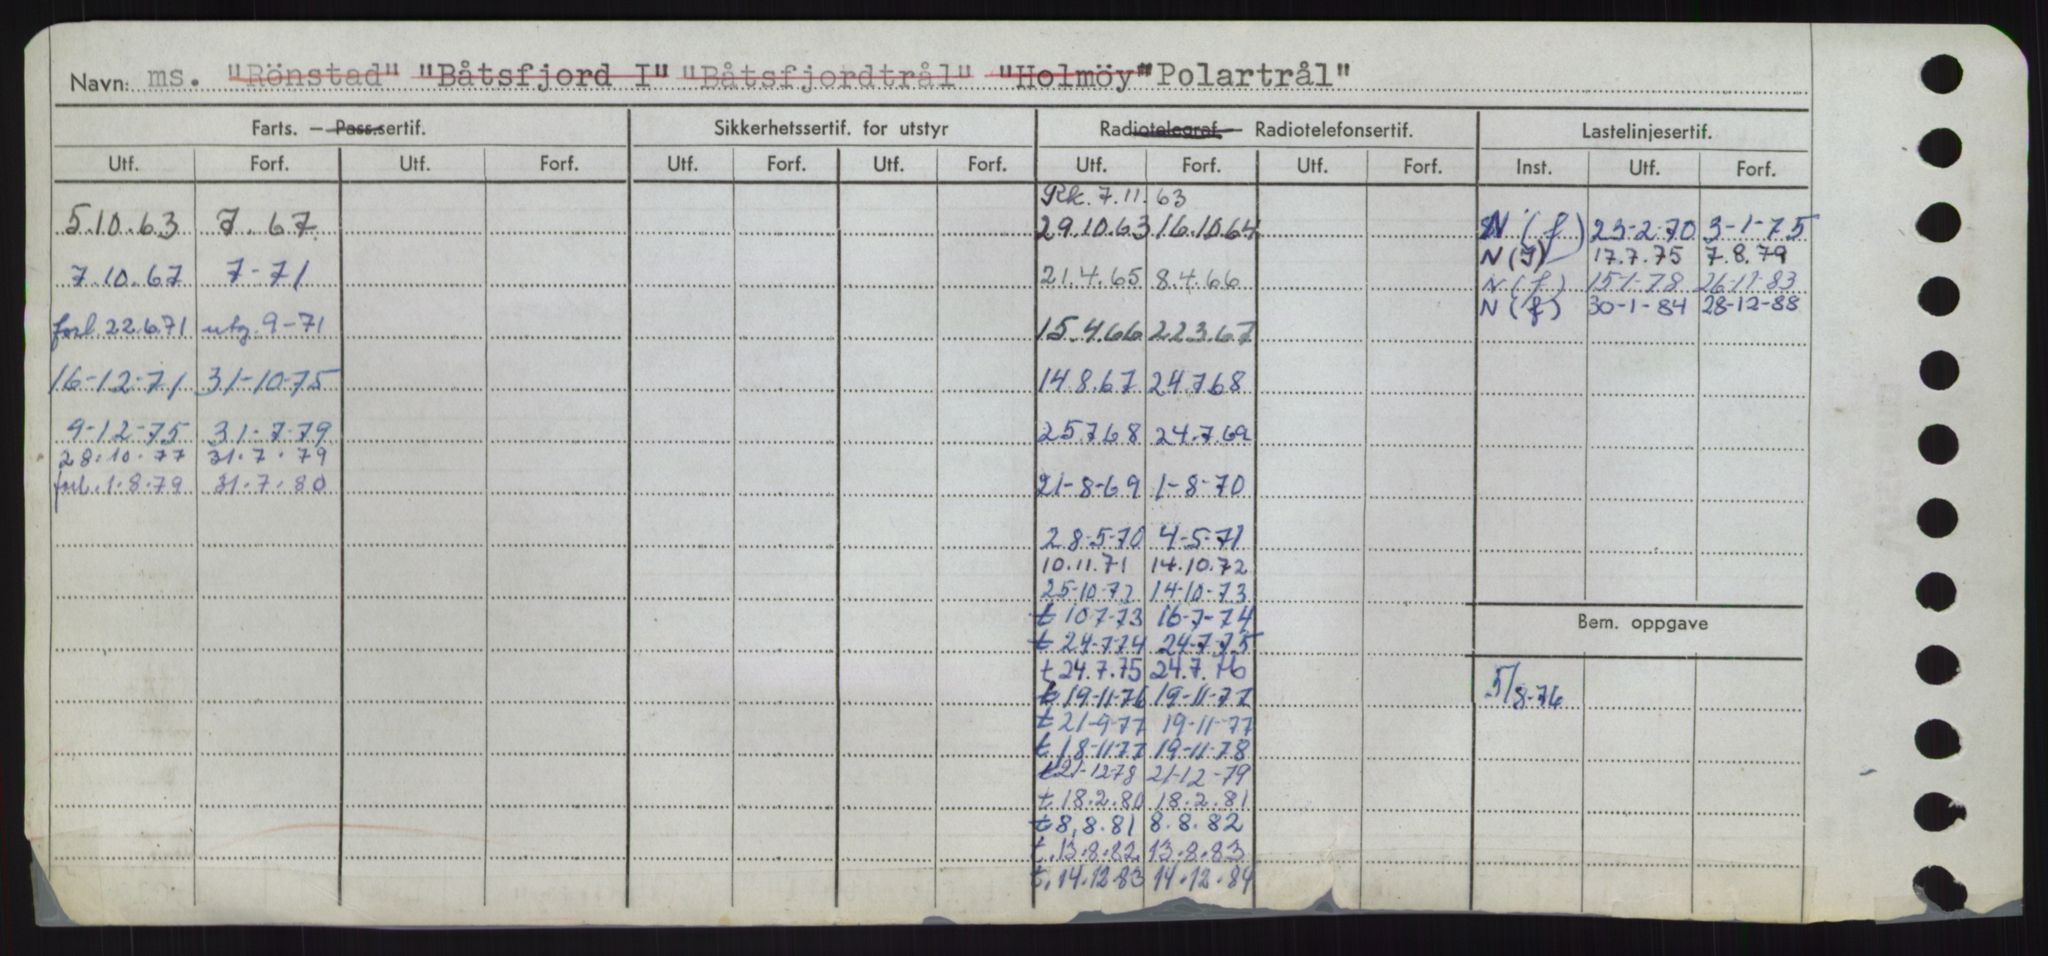 Navn: ms. "Rönstad" "Båtsfjord I" "Båtsfjordtrål" "Holmöy" "Polartrål"
Farts. — Pass.sertif. Sikkerhetssertif. for utstyr Radiotelegraf — Radiotelefonsertif. Lastelinjesertif.
Utf. Forf. Utf. Forf. Utf. Forf. Utf. Forf. Utf. Forf. Utf. Forf. Inst. Utf. Forf.
Rk. 7.11.63
5.10.63 7.67 29.10.63 16.10.64 N (f) 23-2-70 3-1-75
N (f) 17.7.75 7.8.79
7.10.67 7-71 21.4.65 8.4.66 N (f) 15-1-78 26-11-83
N (f) 30-1-84 28-12-88
forl. 22.6.71 utg. 9-71 15.4.66 22.3.67
16-12-71 31-10-75 14.8.67 24.7.68
9-12-75 31-7-79 25.7.68 24.7.69
28.10.77 31.7.79
forl. 1.8.79 31.7.80 21-8-69 1-8-70
28-5-70 4-5-71
10.11.71 14.10.72
25-10-72 14-10-73
t 10-7-73 16-7-74
Bem. oppgave
t 24-7-74 24-7-75
t 24.7.75 24.7.76
t 19-11-76 19-11-77 5/8-76
t 21-9-77 19-11-77
t 18-11-77 19-11-78
t 21-12-78 21-12-79
t. 18.2.80 18.2.81
t 8.8.81 8.8.82
t. 13.8.82 13.8.83
t. 14.12.83 14.12.84